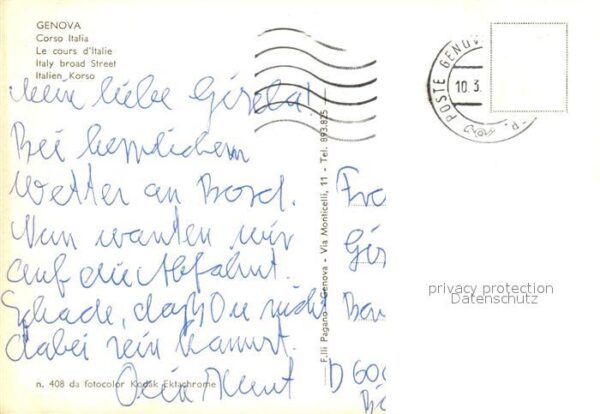 GENOVA
Corso Italia
Le cours d'Italie
Italy broad Street
Italien Korso
Mein liebe Gisela!
Bei herrlichem
Wetter an Bord.
Nun warten wir
auf die Abfahrt.
Schade, daß Du nicht
dabei sein kannst.
Dein
n. 408 da fotocolor Kodak Ektachrome
F.lli Pagano - Genova - Via Monticelli, 11 - Tel. 893.825
POSTE GENOV
10.3.
Fra
Gis
D 600
privacy protection
Datenschutz